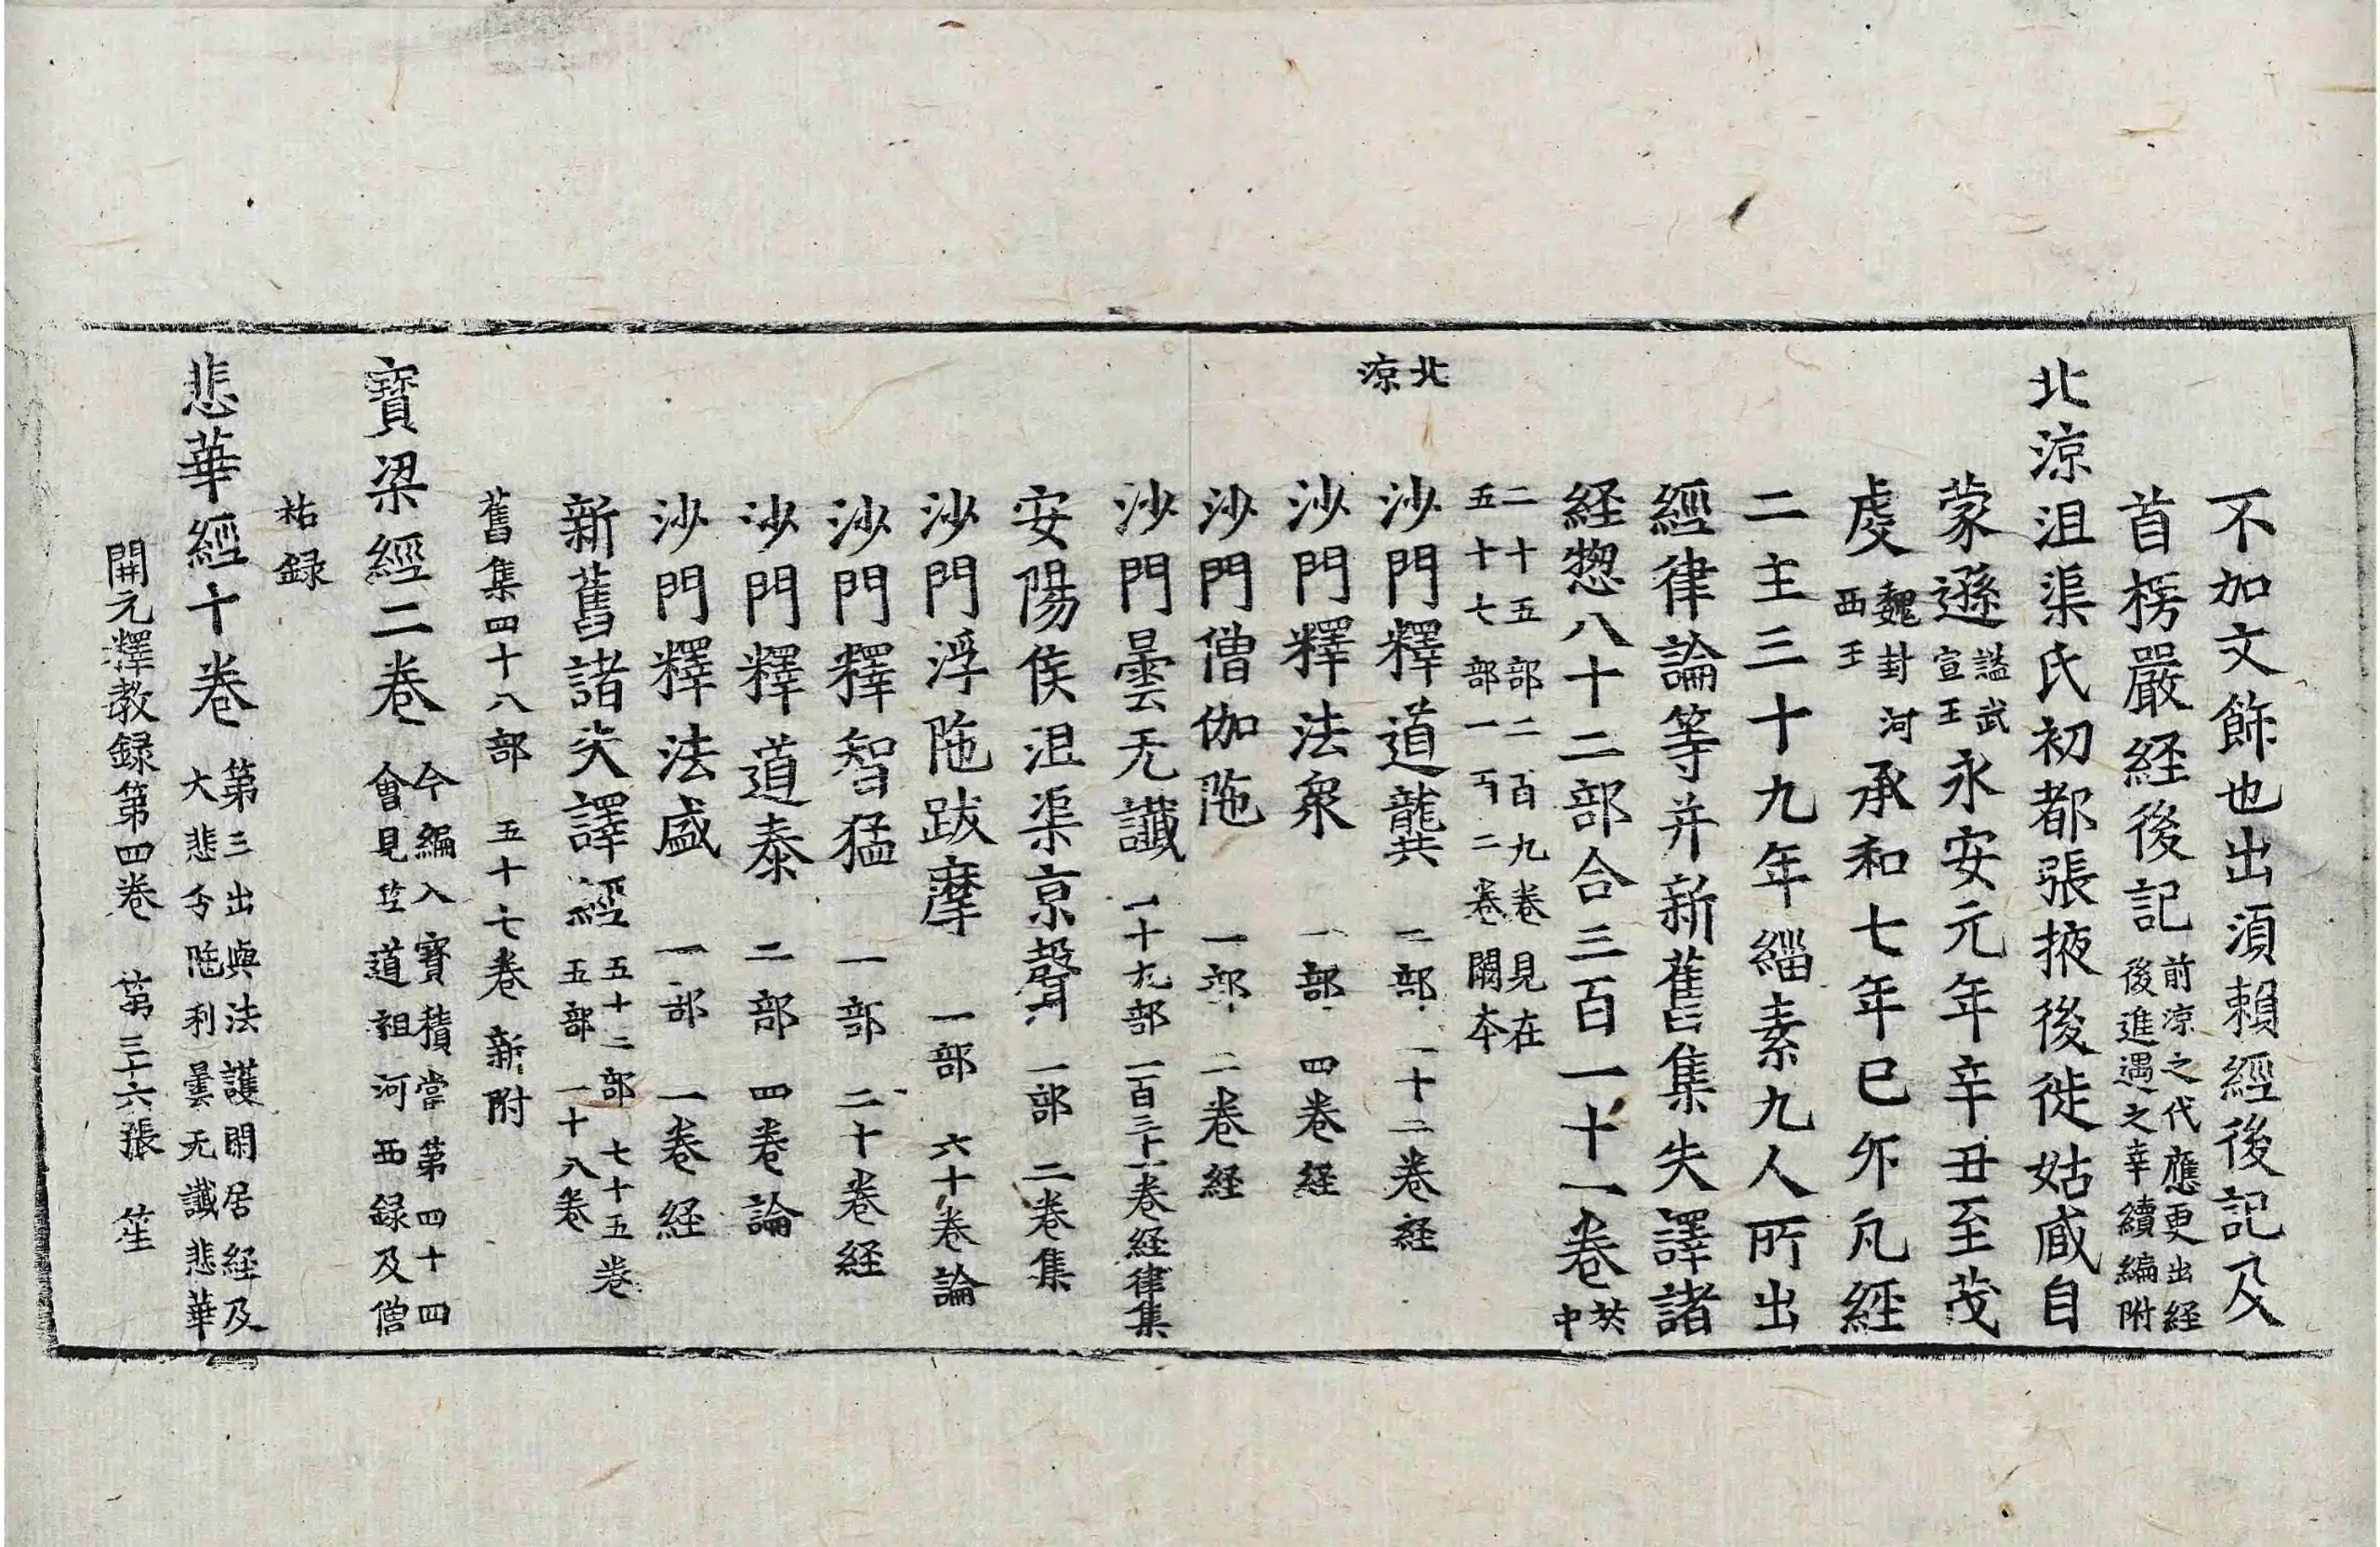 不加文飾也出湏賴經後記及
首楞嚴経後記前涼之代應更出経
後進遇之幸續編附
北涼沮渠氏初都張掖後徙姑臧自
蒙遜謚武
宣王永安元年辛丑至茂
虔魏封河
西王承和七年已夘凡經
二主三十九年緇素九人所出
經律論等并新舊集失譯諸
経惣八十二部合三百一十一卷其
中
二十五部二百九卷見在
五十七部一百二卷闕本
北
涼
沙門釋道龔 二部 一十二卷経
沙門釋法衆 一部 四卷経
沙門僧伽陁 一部 二卷経
沙門曇无讖 一十九部 一百三十一卷経律集
安陽侯沮渠京聲 一部 二卷集
沙門浮陁跋摩 一部 六十卷論
沙門釋智猛 一部 二十卷経
沙門釋道泰 二部 四卷論
沙門釋法盛 一部 一卷経
新舊諸失譯經五十二部 七十五卷
五部 一十八卷
舊集四十八部 五十七卷 新附
寳梁經二卷今編入寳積當第四十四
會見竺道祖河西録及僧
祐録
悲華經十卷第三出與法護閑居経及
大悲分陁利曇无讖悲華
開元釋教録第四卷 第三十六張 笙